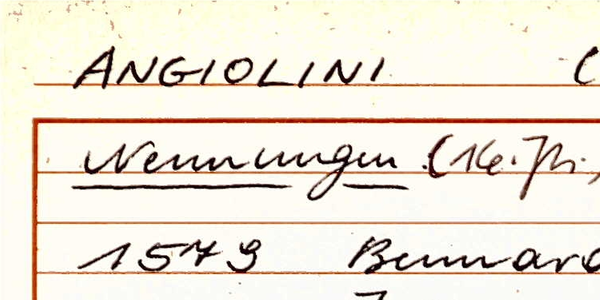 ANGIOLINI (
Nennungen (16. Jh.)
1579 Bernard